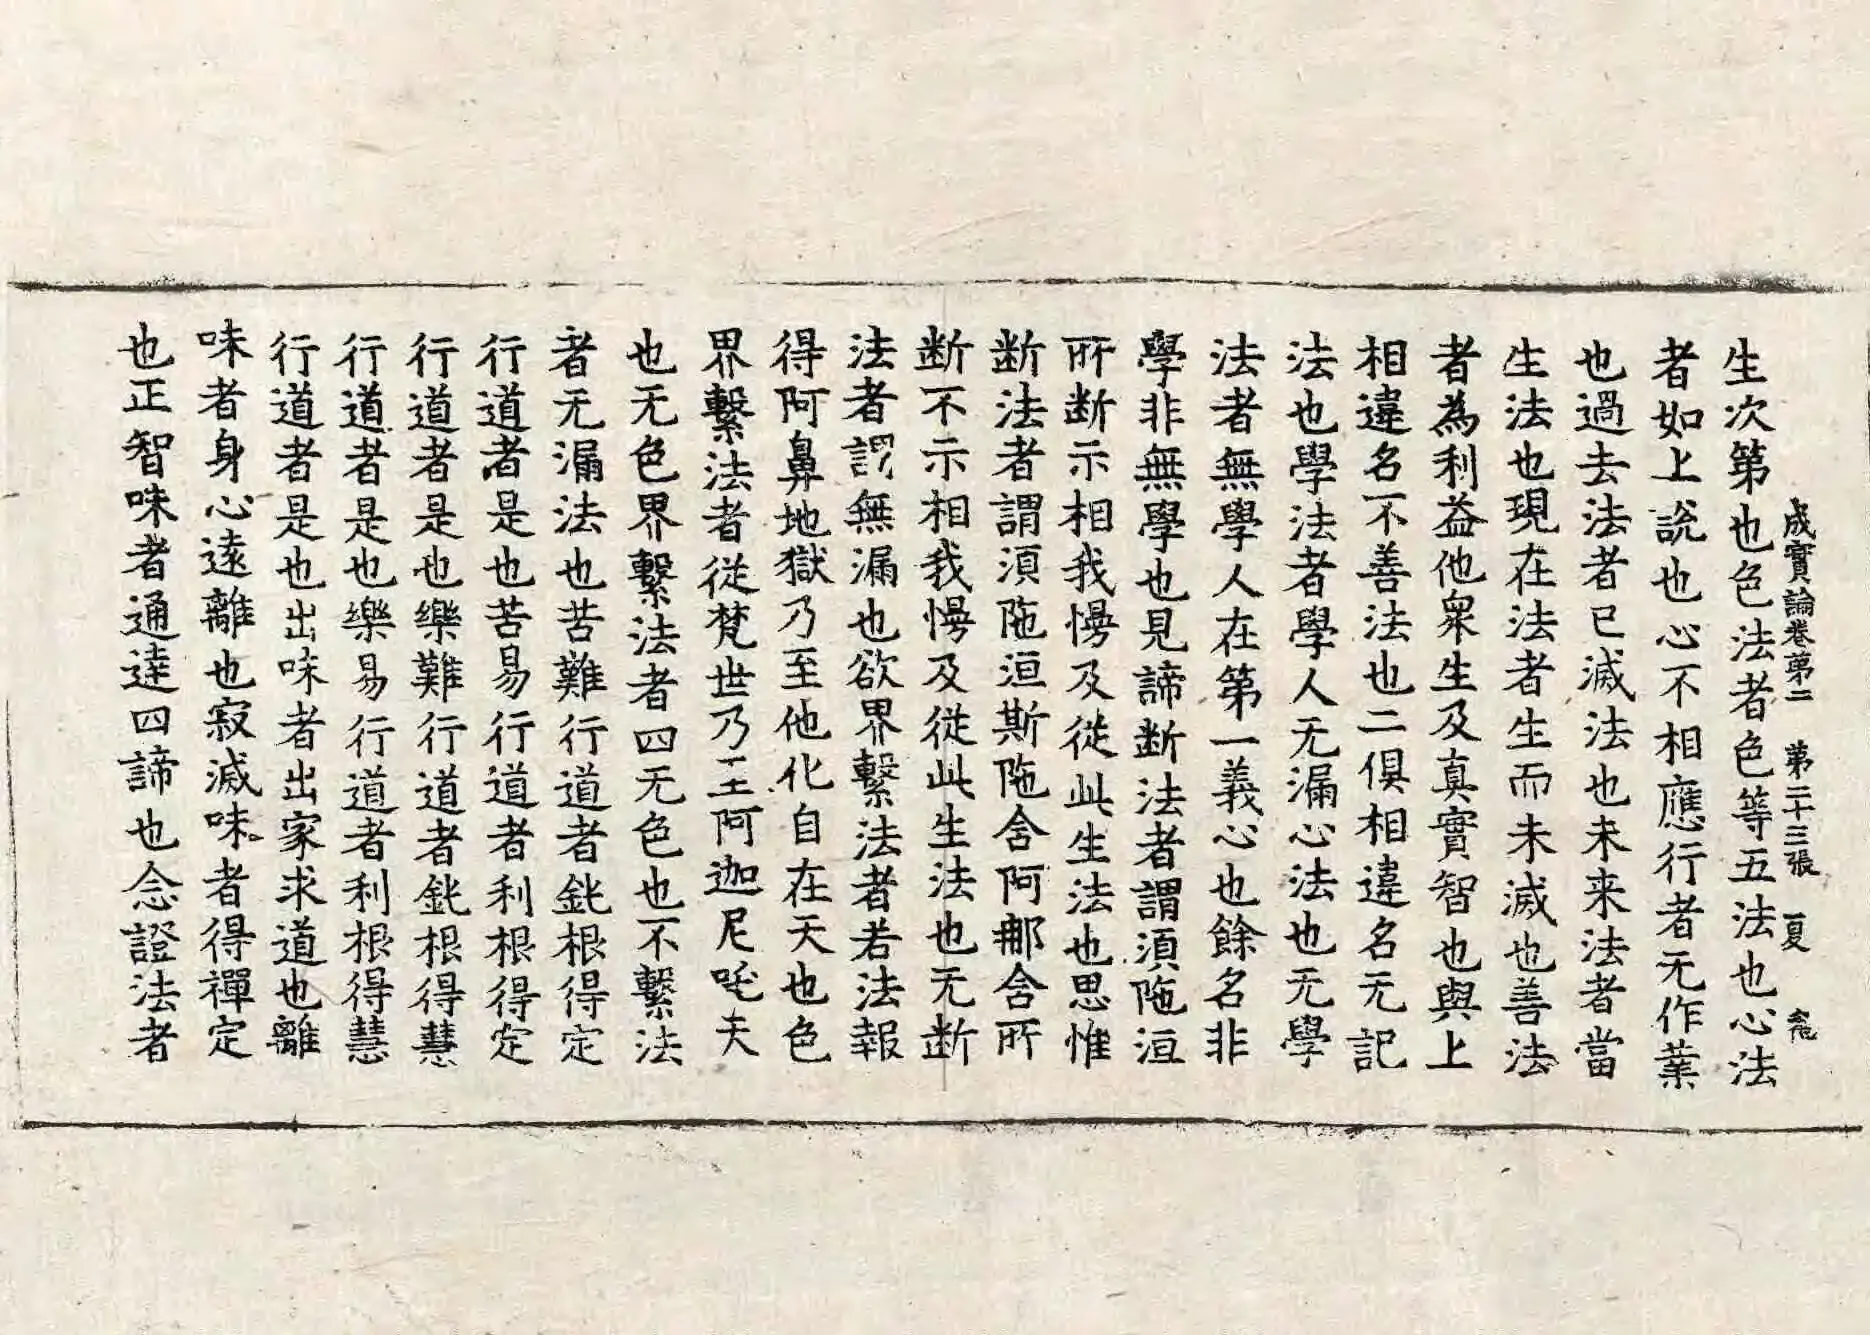 成實論卷第二 第二十三張 夏
生次第也色法者色等五法也心法
者如上說也心不相應行者无作業
也過去法者已滅法也未来法者當
生法也現在法者生而未滅也善法
者為利益他衆生及真實智也與上
相違名不善法也二俱相違名无記
法也學法者學人无漏心法也无學
法者無學人在第一義心也餘名非
學非無學也見諦斷法者謂須陁洹
所斷示相我慢及從此生法也思惟
斷法者謂須陁洹斯陁含阿那含所
斷不示相我慢及從此生法也无斷
法者謂無漏也欲界繫法者若法報
得阿鼻地獄乃至他化自在天也色
界繫法者從梵世乃至阿迦尼吒天
也无色界繫法者四无色也不繫法
者无漏法也苦難行道者鈍根得定
行道者是也苦易行道者利根得定
行道者是也樂難行道者鈍根得慧
行道者是也樂易行道者利根得慧
行道者是也出味者出家求道也離
味者身心遠離也寂滅味者得禪定
也正智味者通達四諦也念證法者